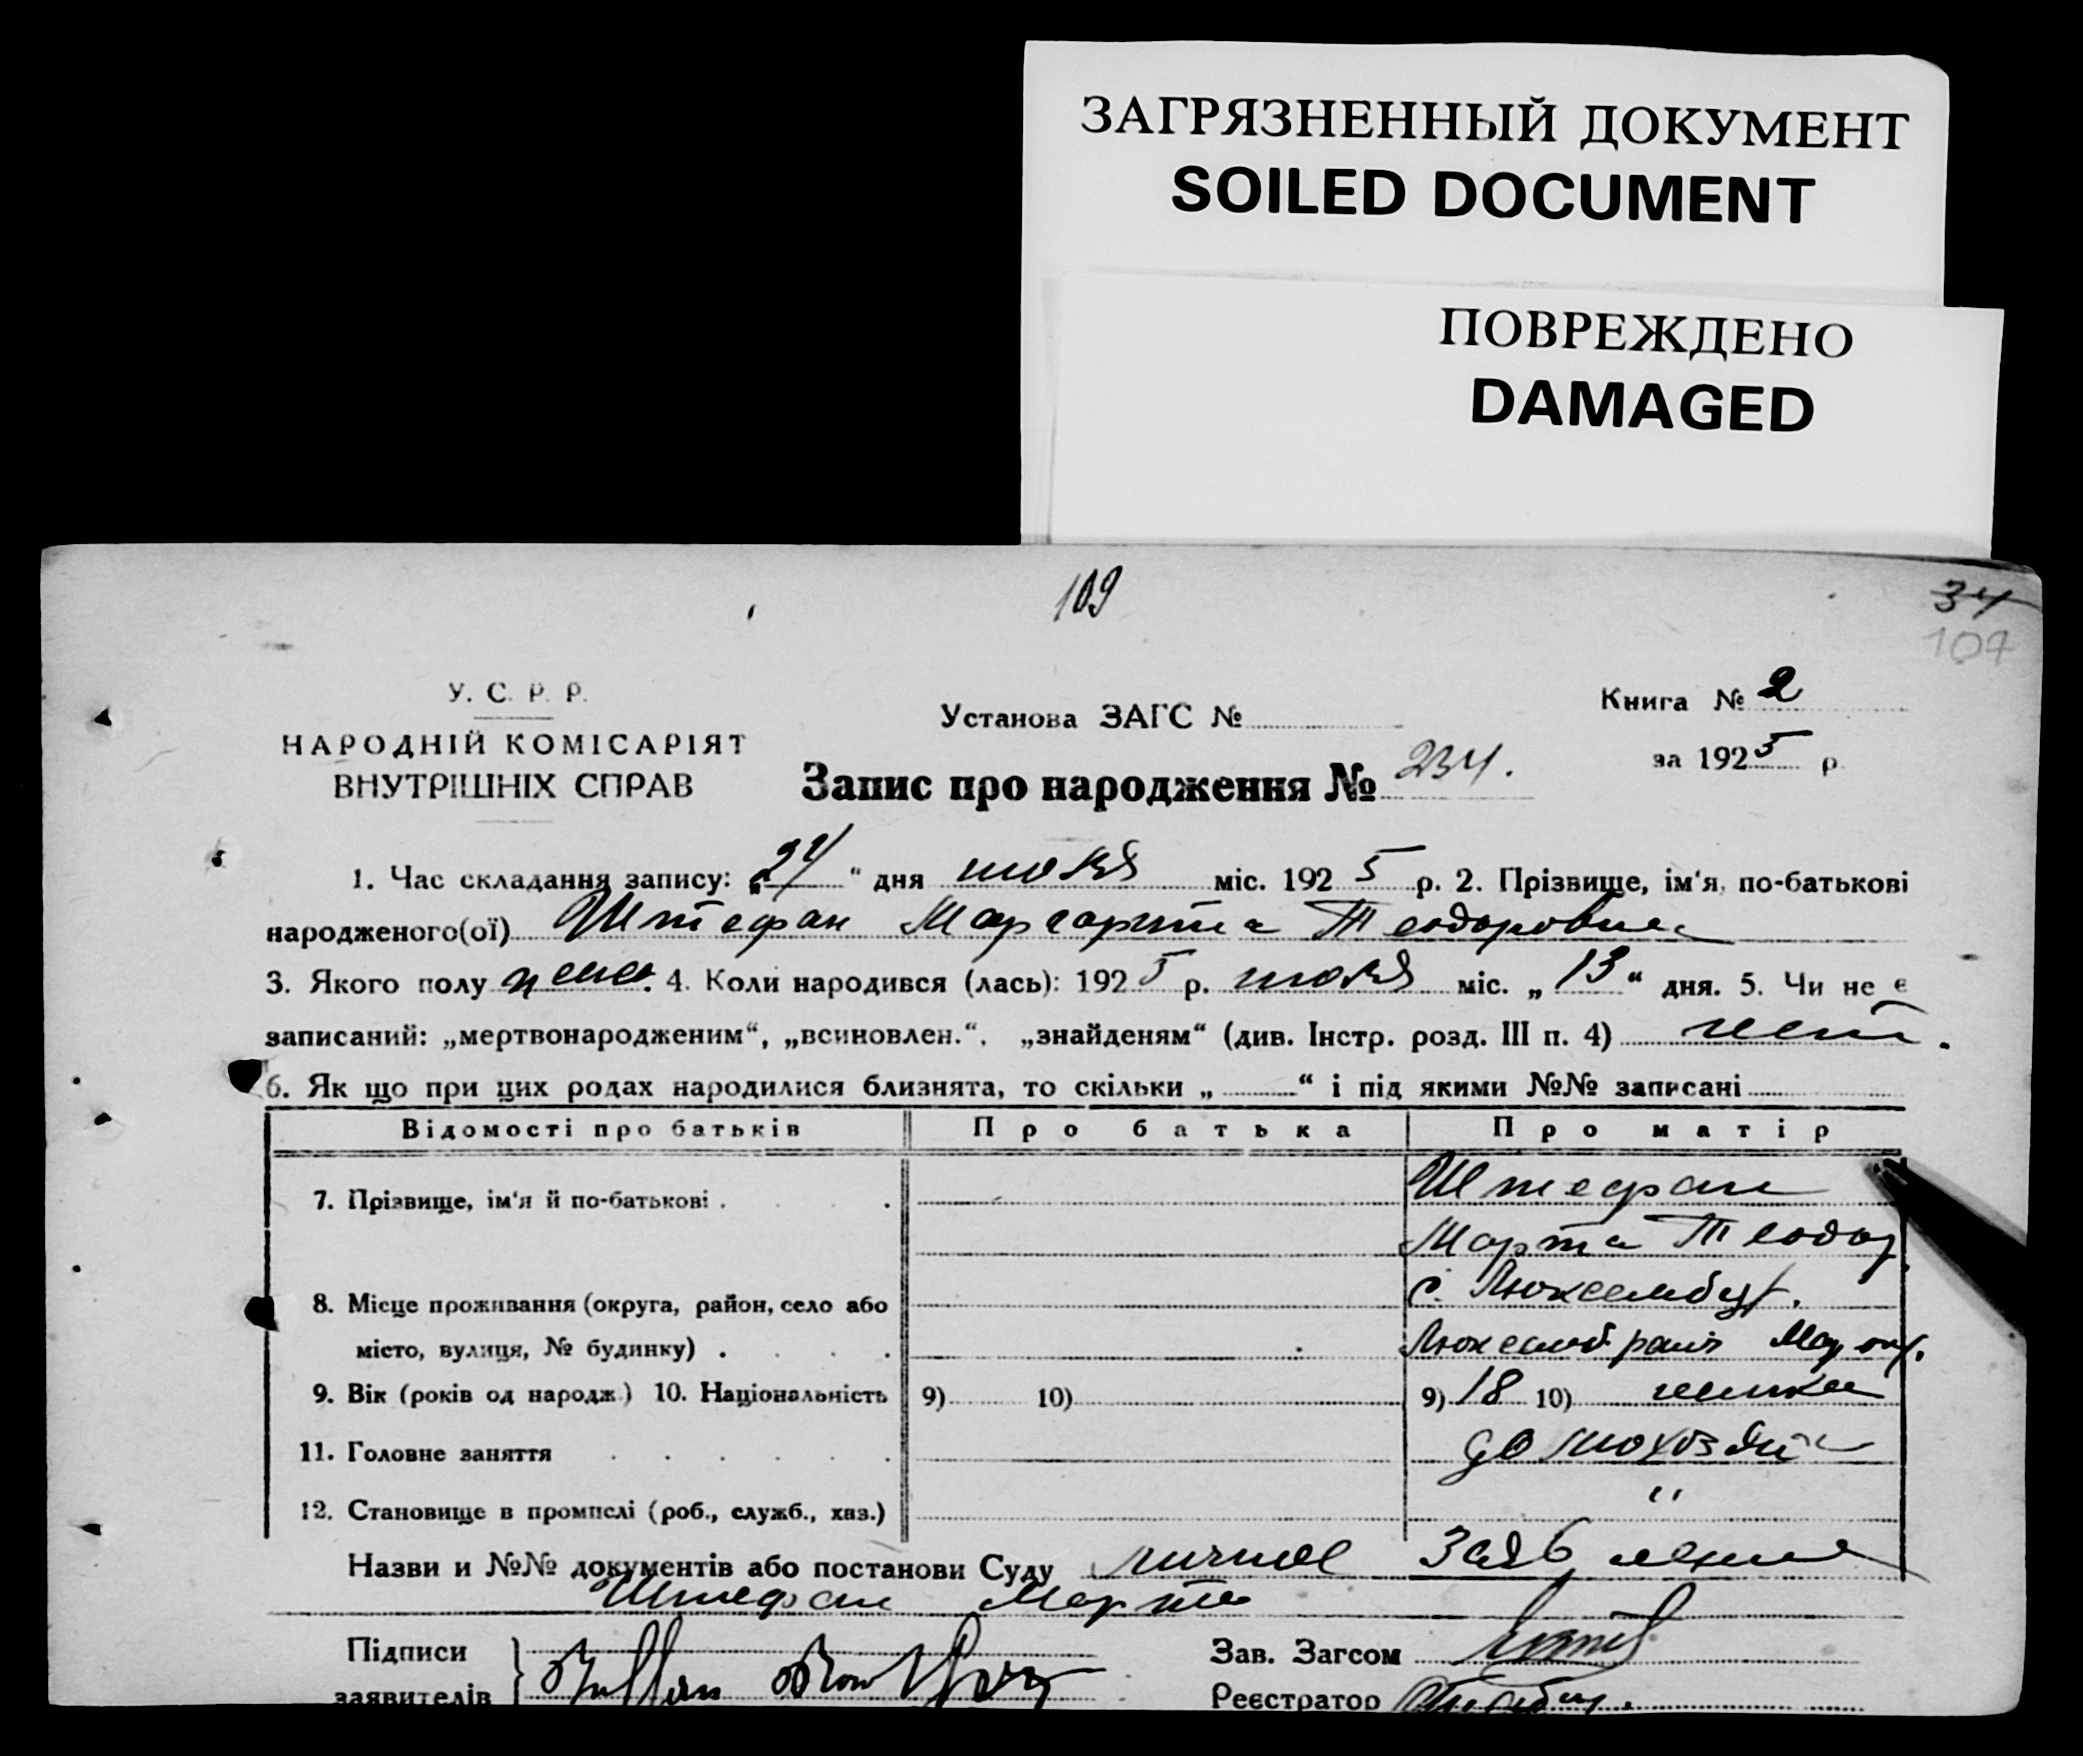 ЗАГРЯЗНЕННЫЙ ДОКУМЕНТ
SOILED DOCUMENT
ПОВРЕЖДЕНО
DAMAGED
109
34
107
У. С. Р. Р.
НАРОДНІЙ КОМІСАРІЯТ
ВНУТРІШНІХ СПРАВ
Установа ЗАГС №
Книга № 2
за 1925 р.
Запис про народження № 234.
1. Час складання запису: „24“ дня июля міс. 1925 р. 2. Прізвище, ім'я, по-батькові
народженого(ої) Штефан Маргарита Теодоровна
3. Якого полу жен. 4. Коли народився (лась): 1925 р. июля міс. „13“ дня. 5. Чи не є
записаний: „мертвонародженим“, „всиновлен.“, „знайденям“ (див. Інстр. розд. III п. 4) нет.
6. Як що при цих родах народилися близнята, то скільки „ “ і під якими №№ записані
Відомості про батьків Про батька Про матір
7. Прізвище, ім'я й по-батькові Штефан
Марта Теодор.
8. Місце проживання (округа, район, село або с. Люксембург.
місто, вулиця, № будинку) Люксемб район Мар. окр.
9. Вік (років од народж.) 10. Національність 9) 10) 9) 18 10) немка
11. Головне заняття домохозяйка
12. Становище в промислі (роб., служб., хаз.) "
Назви и №№ документів або постанови Суду личное заявление
Штефан Марта
Підписи
заявителів
Зав. Загсом
Реєстратор